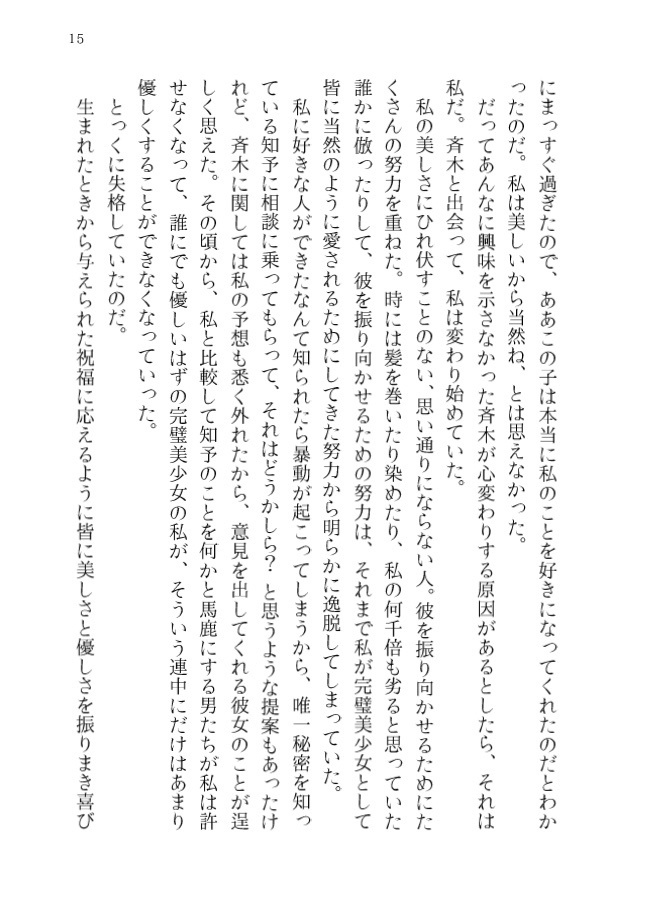 15
にまっすぐ過ぎたので、ああこの子は本当に私のことを好きになってくれたのだとわか
ったのだ。私は美しいから当然ね、とは思えなかった。
だってあんなに興味を示さなかった斉木が心変わりする原因があるとしたら、それは
私だ。斉木と出会って、私は変わり始めていた。
私の美しさにひれ伏すことのない、思い通りにならない人。彼を振り向かせるためにた
くさんの努力を重ねた。時には髪を巻いたり染めたり、私の何千倍も劣ると思っていた
誰かに倣ったりして、彼を振り向かせるための努力は、それまで私が完璧美少女として
皆に当然のように愛されるためにしてきた努力から明らかに逸脱してしまっていた。
私に好きな人ができたなんて知られたら暴動が起こってしまうから、唯一秘密を知っ
ている知予に相談に乗ってもらって、それはどうかしら？ と思うような提案もあったけ
れど、斉木に関しては私の予想も悉く外れたから、意見を出してくれる彼女のことが逞
しく思えた。その頃から、私と比較して知予のことを何かと馬鹿にする男たちが私は許
せなくなって、誰にでも優しいはずの完璧美少女の私が、そういう連中にだけはあまり
優しくすることができなくなっていった。
とっくに失格していたのだ。
生まれたときから与えられた祝福に応えるように皆に美しさと優しさを振りまき喜び